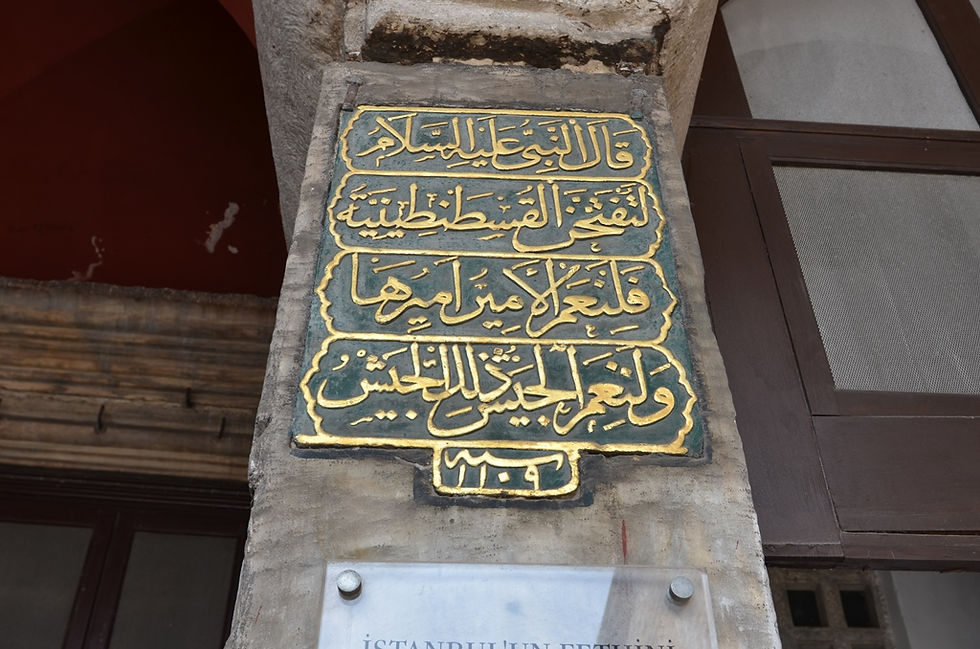 قَالَ النَّبِيُّ عَلَيْهِ السَّلَامُ
لَتُفْتَحَنَّ الْقُسْطَنْطِينِيَّةُ
فَلَنِعْمَ الْأَمِيرُ أَمِيرُهَا
وَلَنِعْمَ الْجَيْشُ ذٰلِكَ الْجَيْشُ
سنه
İSTANBUL'UN FETHİNİ